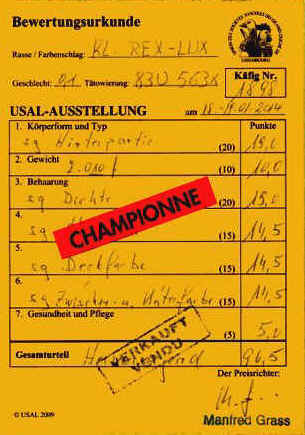 Bewertungsurkunde
Rasse / Farbenschlag: BL. REX-LUX
Geschlecht: 0,1 Tätowierung: 83U 563X
Käfig Nr.
1898
USAL-AUSSTELLUNG am 18.-19.01.2014
1. Körperform und Typ Punkte
sg Hinterpartie (20) 19,0
2. Gewicht
(10) 10,0
3. Behaarung
sg Dichte (20)
4.
sg (15) 14,5
CHAMPIONNE
5.
sg Deckfarbe (15) 14,5
6.
sg Zwischen- u. Unterfarbe (15) 14,5
7. Gesundheit und Pflege
(5) 5,0
VERKAUFT
VENDU
Gesamturteil 96,5
Der Preisrichter:
Manfred Grass
© USAL 2009